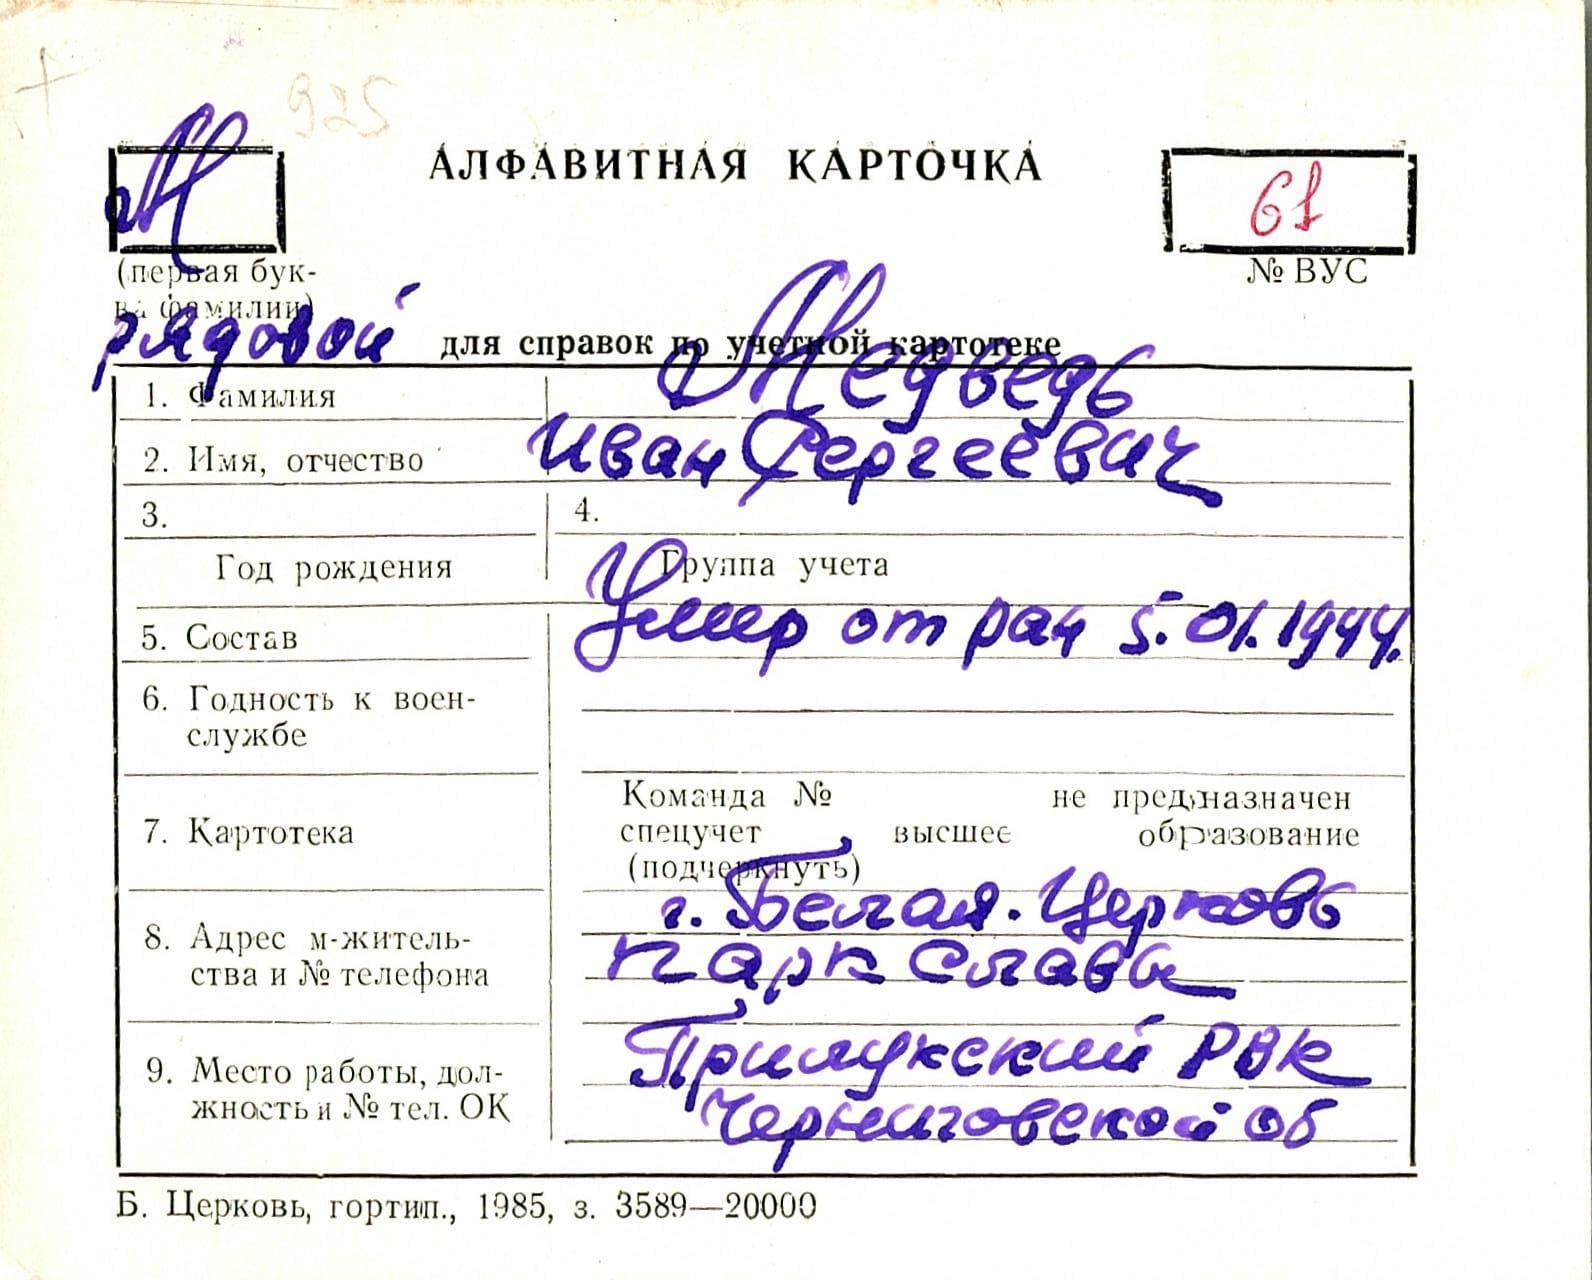 925
М
АЛФАВИТНАЯ КАРТОЧКА
61
(первая бук-
ва фамилии)
№ ВУС
рядовой
для справок по учетной картотеке
1. Фамилия
Медведь
2. Имя, отчество
Иван Сергеевич
3.
4.
Год рождения
Группа учета
5. Состав
Умер от ран 5.01.1944.
6. Годность к воен-
службе
Команда № не предназначен
7. Картотека
спецучет высшее образование
(подчеркнуть)
8. Адрес м-житель-
ства и № телефона
г. Белая. Церковь
парк Славы
9. Место работы, дол-
жность и № тел. ОК
Прилукский РВК
Черниговской об
Б. Церковь, гортип., 1985, з. 3589—20000